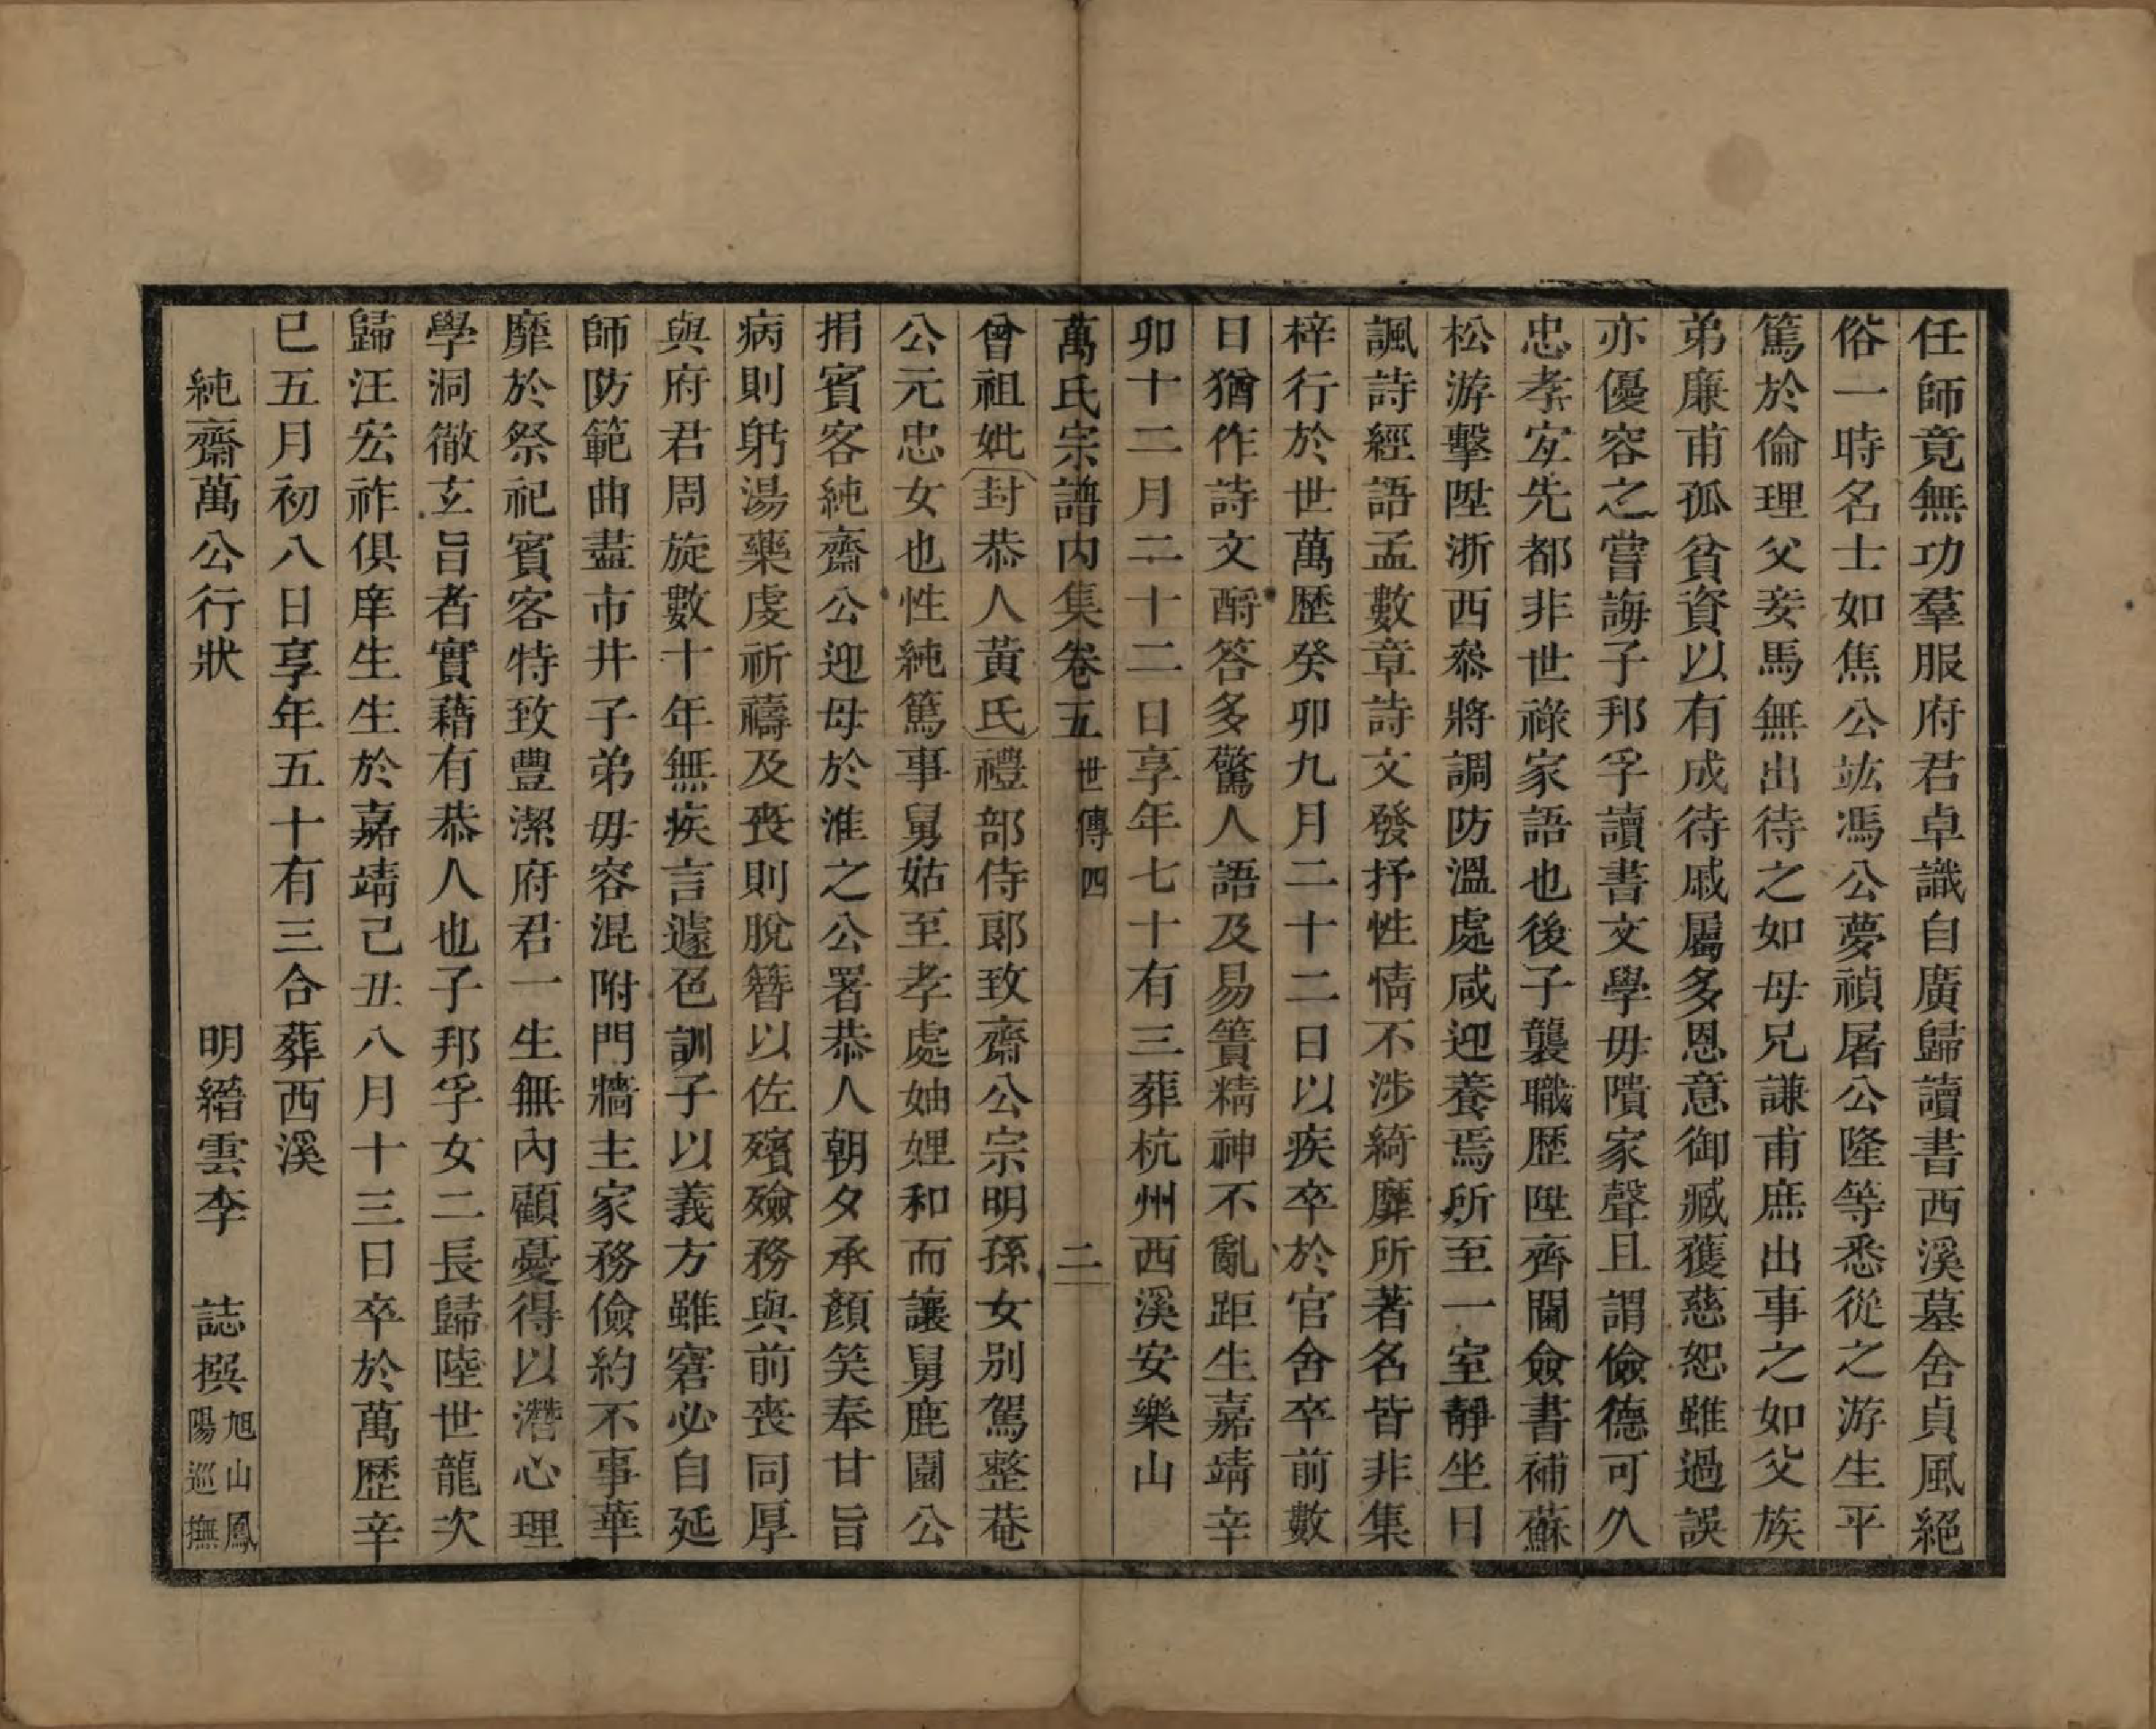 任師竟無功羣服府君卓識自廣歸讀書西溪墓舍貞風絕
俗一時名士如焦公竑馮公夢禎屠公隆等悉從之游生平
篤於倫理父妾馬無出待之如母兄謙甫庶出事之如父族
弟廉甫孤貧資以有成待戚屬多恩意御臧獲慈恕雖過誤
亦優容之嘗誨子邦孚讀書文學毋隤家聲且謂儉德可久
忠孝㝎先都非世祿家語也後子襲職歷陞齊閫僉書補蘇
松游擊陞浙西叅將調防溫處咸迎養焉所至一室靜坐日
諷詩經語孟數章詩文發抒性情不涉綺靡所著名皆非集
梓行於世萬歷癸卯九月二十二日以疾卒於官舍卒前數
日猶作詩文酧答多驚人語及易簀精神不亂距生嘉靖辛
卯十二月二十二日享年七十有三葬杭州西溪安樂山
萬氏宗譜内集卷五 世傳四 二
曾祖妣封恭人黃氏禮部侍郎致齋公宗明孫女別駕整菴
公元忠女也性純篤事舅姑至孝處妯娌和而讓舅鹿園公
捐賓客純齋公迎母於淮之公署恭人朝夕承顏笑奉甘旨
病則躬湯藥虔祈禱及喪則脫簪以佐殯殮務與前喪同厚
與府君周旋數十年無疾言遽色訓子以義方雖窘必自延
師防範曲盡市井子弟毋容混附門牆主家務儉約不事華
靡於祭祀賓客特致豐潔府君一生無內顧憂得以潛心理
學洞徹玄旨者實藉有恭人也子邦孚女二長歸陸世龍次
歸汪宏祚俱庠生生於嘉靖己丑八月十三日卒於萬歷辛
巳五月初八日享年五十有三合葬西溪
純齋萬公行狀 明縉雲李 誌撰 旭山鳳陽巡撫